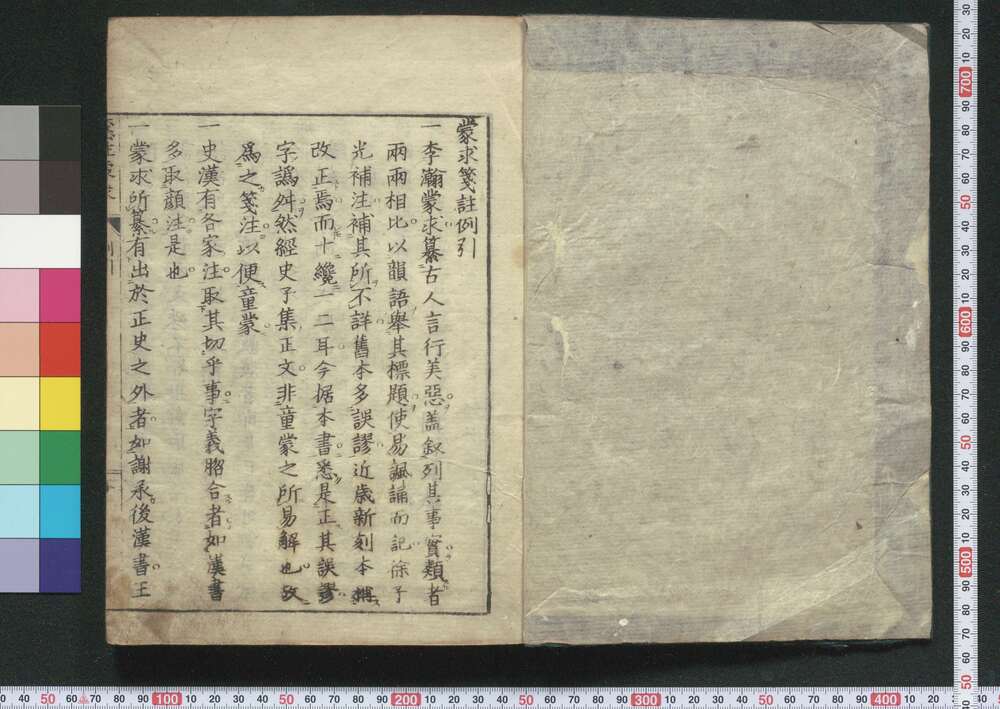 蒙求箋註例引
一李瀚蒙求纂古人言行美惡盖叙列其事實類者
兩兩相比以韻語舉其標題使易諷誦而記徐子
光補注補其所不詳舊本多誤謬近歲新刻本稱
改正焉而十纔一二耳今据本書悉是正其誤謬
字譌舛然經史子集正文非童蒙之所易解也故
爲之箋注以便童蒙
一史漢有各家注取其切乎事字義脗合者如漢書
多取顔注是也
一蒙求所纂有出於正史之外者如謝承後漢書王